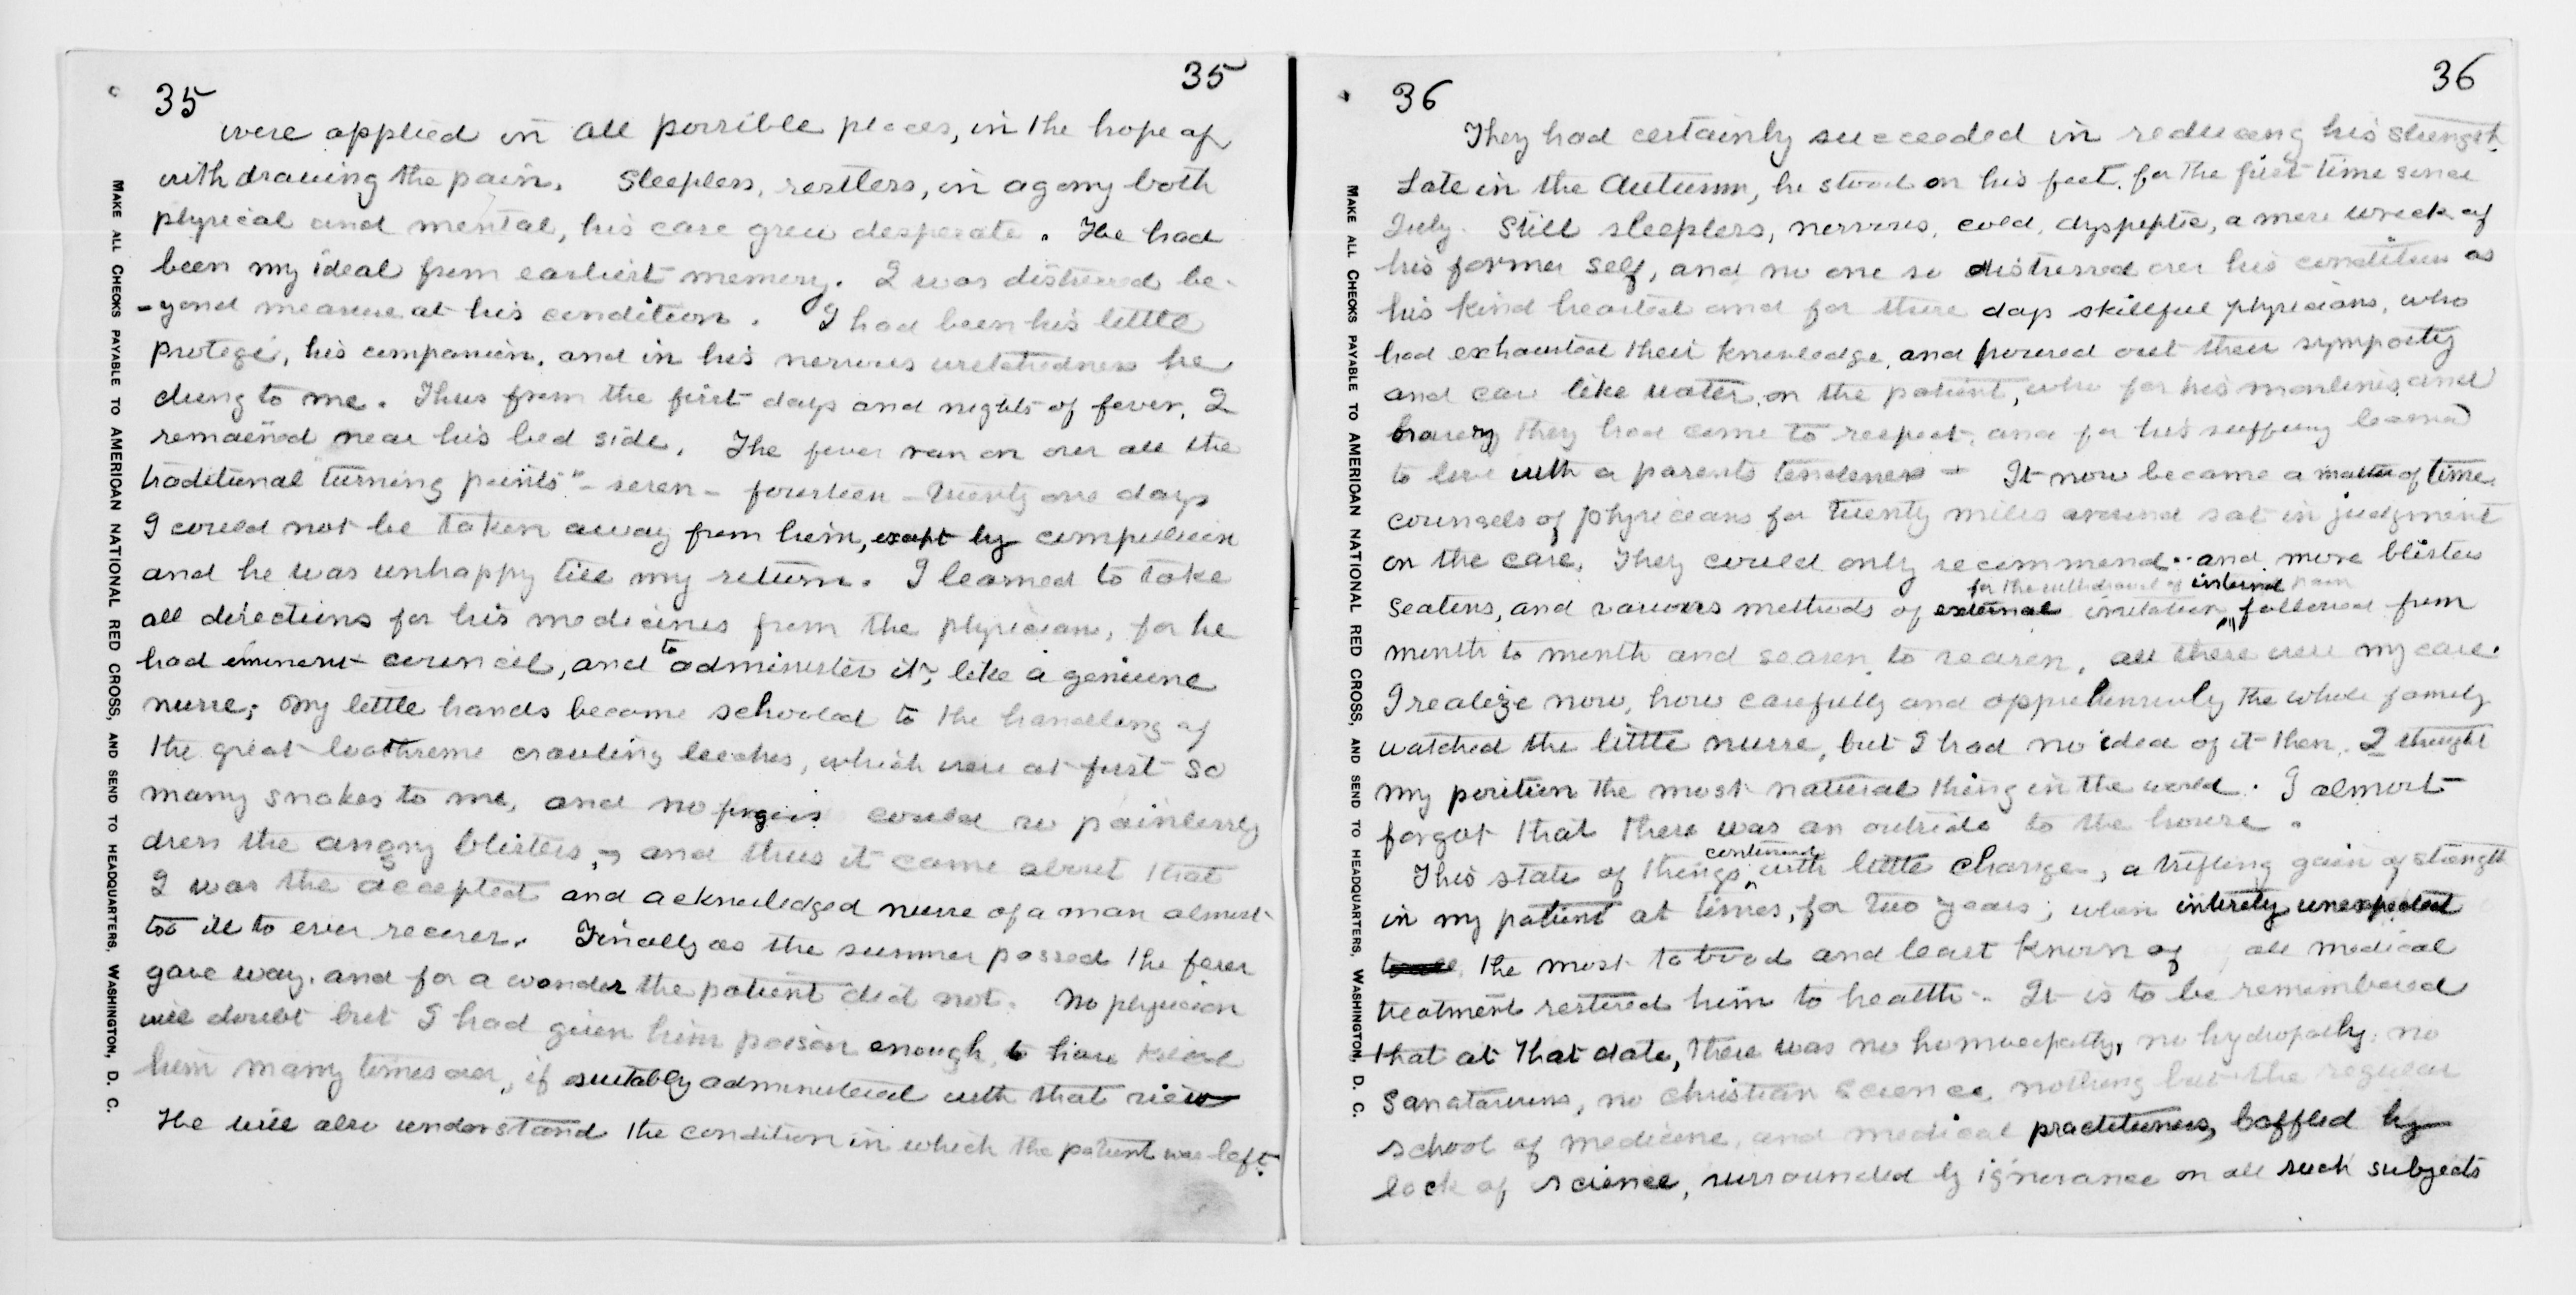 35
35
were applied in all possible places, in the hope of
with drawing the pain. Sleepless, restless, in agony both
physical and mental, his case grew desperate. He had
been my ideal from earliest memory. I was distressed be-
-yond measure at his condition. I had been his little
protegé, his companion, and in his nervous wretchedness he
clung to me. Thus from the first days and nights of fever, I
remained near his bed side. The fever ran on over all the
traditional "turning points" - seven - fourteen - twenty one days
I could not be taken away from him, except by compulsion
and he was unhappy till my return. I learned to take
all directions for his medicines from the physicians, for he
had eminent council, and to administer it, like a genuine
nurse; My little hands became schooled to the handling of
the great loathsome crawling leeches, which were at first so
many snakes to me, and no fingers could so painlessly
dress the angry blisters, - and thus it came about that
I was the accepted and acknowledged nurse of a man almost
too ill to ever recover. Finally as the summer passed the fever
gave way, and for a wonder the patient did not. No physician
will doubt but I had given him poison enough to have killed
him many times over, if suitably administered with that view
He will also understand the condition in which the patient was left.
MAKE ALL CHECKS PAYABLE TO AMERICAN NATIONAL RED CROSS, AND SEND TO HEADQUARTERS, WASHINGTON, D. C.
36
36
They had certainly succeeded in reducing his strength.
Late in the Autumn, he stood on his feet for the first time since
July. Still sleepless, nervous, cold, dyspeptic, a mere wreck of
his former self, and no one so distressed over his condition as
his kind hearted and for those days skillful physicians, who
had exhausted their knowledge, and poured out their sympathy
and care like water, on the patient, who for his manliness and
bravery they had come to respect, and for his suffering learned
to love with a parents tenderness - It now became a matter of time
counsels of physicians for twenty miles around sat in judgment
on the case. They could only recommend - and more blisters
for the withdrawal of internal pain
seatens, and various methods of external irritation, followed from
month to month and season to season, all these were my care.
I realize now, how carefully and apprehensively the whole family
watched the little nurse, but I had no idea of it then. I thought
my position the most natural thing in the world. I almost
forgot that there was an outside to the house.
continued
This state of things with little change, a trifling gain of strength
in my patient at times, for two years; when intirely unexpected
the most tabood and least known of all medical
treatment restored him to health. It is to be remembered
that at that date, there was no homoeopathy, no hydropathy, no
Sanatariums, no christian science, nothing but the regular
school of medicine, and medical practitioners, baffled by
lack of science, surrounded by ignorance on all such subjects
MAKE ALL CHECKS PAYABLE TO AMERICAN NATIONAL RED CROSS, AND SEND TO HEADQUARTERS, WASHINGTON, D. C.